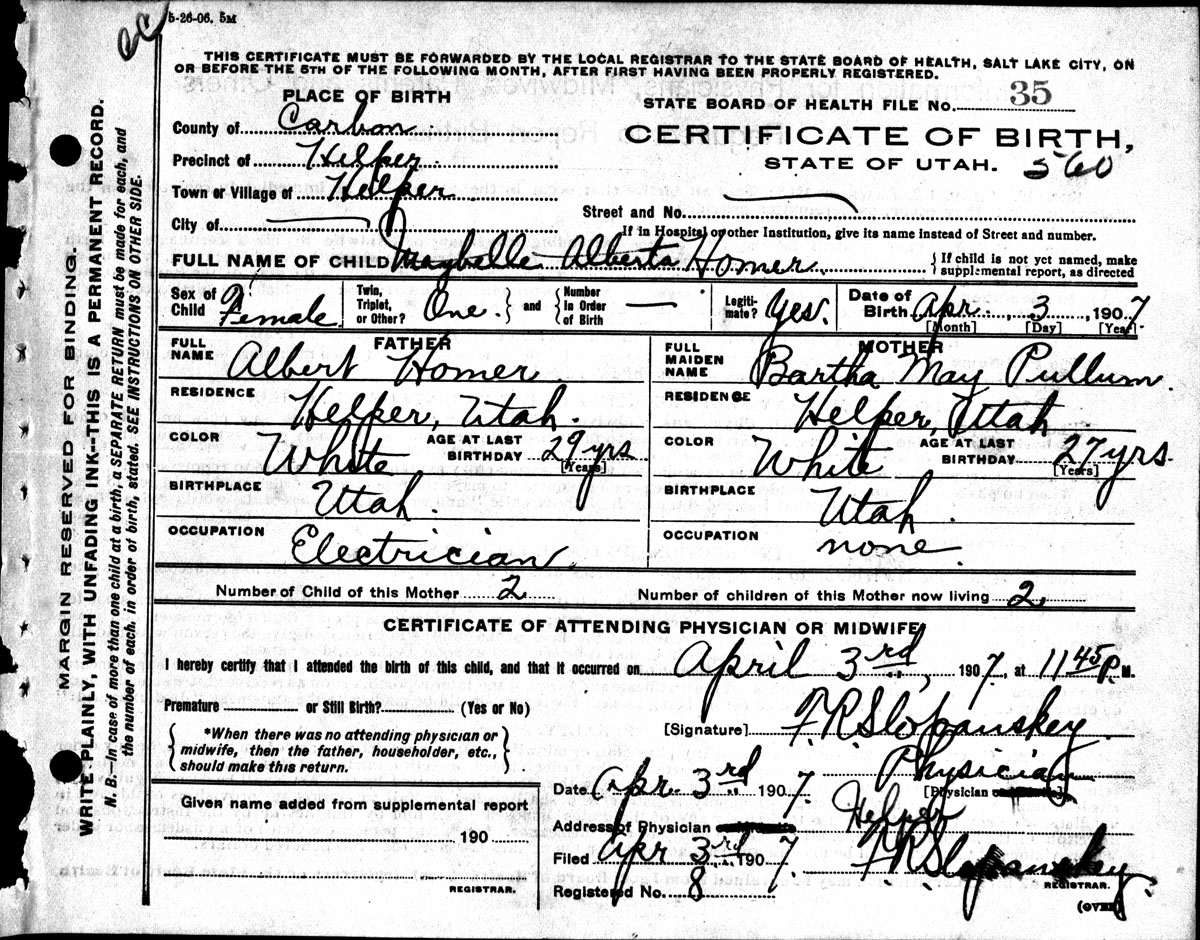 5-26-06. 5M
THIS CERTIFICATE MUST BE FORWARDED BY THE LOCAL REGISTRAR TO THE STATE BOARD OF HEALTH, SALT LAKE CITY, ON
OR BEFORE THE 5TH OF THE FOLLOWING MONTH, AFTER FIRST HAVING BEEN PROPERLY REGISTERED.
PLACE OF BIRTH
STATE BOARD OF HEALTH FILE NO. 35
County of Carbon
CERTIFICATE OF BIRTH,
Precinct of Helper
STATE OF UTAH. 560
Town or Village of Helper
Street and No.
City of
If in Hospital or other Institution, give its name instead of Street and number.
FULL NAME OF CHILD Maybelle Alberta Homer
{ If child is not yet named, make supplemental report, as directed
Sex of Child Female Twin, Triplet, or Other? One. } and { Number in Order of Birth — Legiti-mate? Yes. Date of Birth Apr. 3, 1907
[Month] [Day] [Year]
FATHER
FULL NAME Albert Homer.
RESIDENCE Helper, Utah.
COLOR White AGE AT LAST BIRTHDAY 29 yrs
[Years]
BIRTHPLACE Utah.
OCCUPATION Electrician
MOTHER
FULL MAIDEN NAME Bartha May Pullum.
RESIDENCE Helper, Utah
COLOR White AGE AT LAST BIRTHDAY 27 yrs.
[Years]
BIRTHPLACE Utah.
OCCUPATION none.
Number of Child of this Mother 2 Number of children of this Mother now living 2
CERTIFICATE OF ATTENDING PHYSICIAN OR MIDWIFE
I hereby certify that I attended the birth of this child, and that it occurred on April 3rd, 1907, at 11 45 P. M.
Premature or Still Birth? (Yes or No)
[Signature] F. R. Slopanskey.
{ *When there was no attending physician or
midwife, then the father, householder, etc.,
should make this return. }
Physician
[Physician
Date Apr. 3rd 1907.
Given name added from supplemental report
190
REGISTRAR.
Address of Physician Helper
Filed Apr 3rd 1907 F. R. Slopanskey
REGISTRAR.
Registered No. 8
(OVER)
MARGIN RESERVED FOR BINDING.
WRITE PLAINLY, WITH UNFADING INK--THIS IS A PERMANENT RECORD.
N. B.—In case of more than one child at a birth, a SEPARATE RETURN must be made for each, and
the number of each, in order of birth, stated. SEE INSTRUCTIONS ON OTHER SIDE.